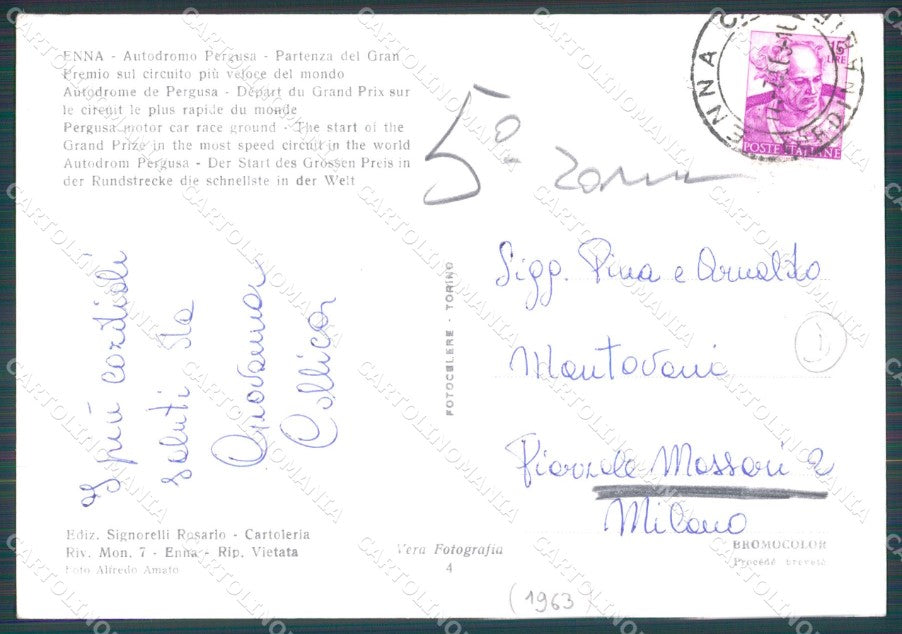 ENNA - Autodromo Pergusa - Partenza del Gran
Premio sul circuito più veloce del mondo
Autodrome de Pergusa - Départ du Grand Prix sur
le circuit le plus rapide du monde
Pergusa motor car race ground - The start of the
Grand Prize in the most speed circuit in the world
Autodrom Pergusa - Der Start des Grossen Preis in
der Rundstrecke die schnellste in der Welt
ENNA
15
LIRE
POSTE ITALIANE
5°
Sigg. Pina e Arnaldo
Mantovani
Piazzale Massari 2
Milano
I più cordiali
saluti da
Giovanna
Collica
FOTOCELERE - TORINO
Ediz. Signorelli Rosario - Cartoleria
Riv. Mon. 7 - Enna - Rip. Vietata
Foto Alfredo Amato
Vera Fotografia
4
BROMOCOLOR
Procedé breveté
(1963)
CARTOLINOMANIA